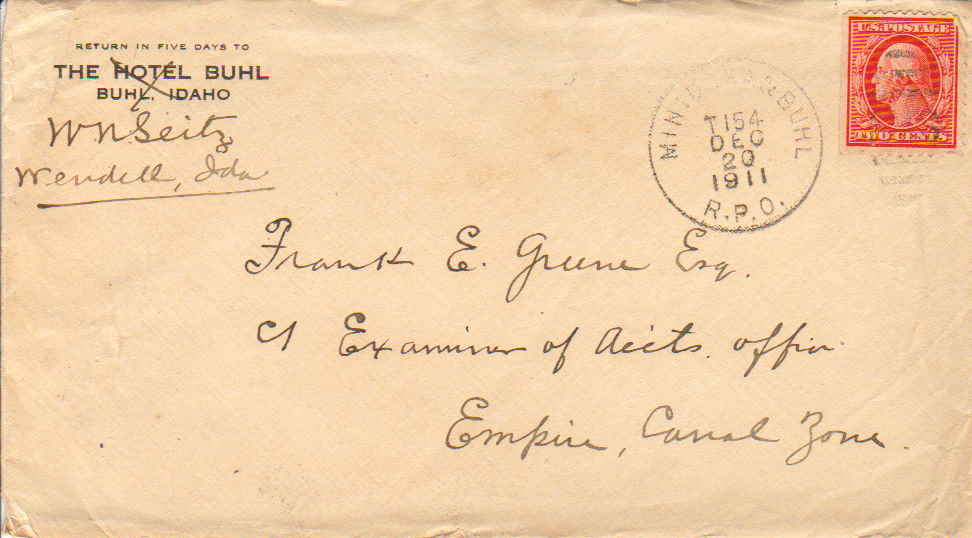 RETURN IN FIVE DAYS TO
THE HOTEL BUHL
BUHL, IDAHO
W N Seitz
Wendell, Ida
U.S. POSTAGE
TWO CENTS
MINID & BUHL
T154
DEC
20
1911
R.P.O.
Frank E. Greene Esq.
Examiner of Accts. office
Empire, Canal Zone.